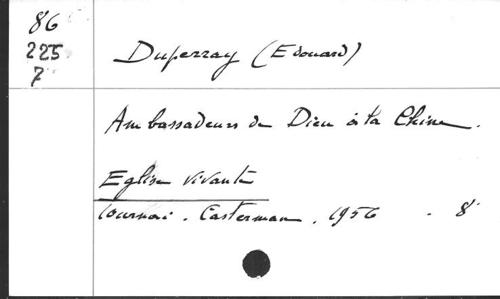 86
225
7
Duperray (Edouard)
Ambassadeurs de Dieu à la Chine.
Eglise vivante
Tournai. Casterman. 1956 - 8°